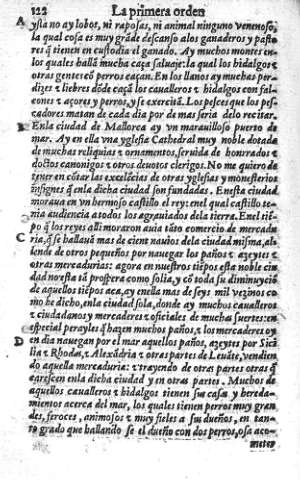 122 La primera orden
A ysla no ay lobos, ni raposas, ni animal ninguno venenoso,
la qual cosa es muy grāde descanso a los ganaderos y pasto
res q̃ tienen en custodia el ganado. Ay muchos montes en
los quales hallā mucha caça saluaje: la qual los hidalgos τ
otras gentes cō perros caçan. En los llanos ay muchas per
dizes τ liebres dōde caçā los caualleros τ hidalgos con fal-
cones τ açores y perros, y se exercitā. Los pesces que los pes-
cadores matan de cada dia por demas seria de lo recitar.
B En la ciudad de Mallorca ay vn marauilloso puerto de
mar. Ay en ella vna yglesia Cathedral muy noble dotada
de muchas reliquias τ ornamentos, seruida de honrrados τ
doctos canonigos τ otros deuotos clerigos. No me quiero de
tener en cōtar las excelēcias de otras yglesias y monesterios
insignes q̃ en la dicha ciudad son fundadas. En esta ciudad
moraua en vn hermoso castillo el rey: en el qual castillo te-
nia audiencia a todos los agrauiados de la tierra. En el tiē-
po q̃ los reyes alli moraron auia tāto comercio de mercadu
C ria, q̃ se hallauā mas de cient nauios de la ciudad misma, al-
lende de otros pequeños por nauegar los paños τ azeytes τ
otras mercadurias: agora en nuestros tiēpos esta noble ciu
dad no esta tā prospera como solia, y cō toda su diminuyciō
de aquellos tiēpos aca, ay en ella mas de seys mil vezinos co
mo he dicho, en la ciudad sola, donde ay muchos caualleros
τ ciudadanos y mercaderes τ oficiales de muchas suertes: en
especial perayles q̃ hazen muchos paños, τ los mercaderes oy
D en dia nauegan por el mar aquellos paños, azeytes por Sici
lia τ Rhodas, τ Alexādria τ otras partes de Leuāte, vendien
do aquella mercaduria: τ trayendo de otras partes otras q̃
carescen en la dicha ciudad y en otras partes. Muchos de
aquellos caualleros τ hidalgos tienen sus casas y hereda-
mientos acerca del mar, los quales tienen perros muy gran
des, feroces, animosos τ muy fieles a sus dueños, en tan-
to grado que hallando se el dueño con dos perros, osa aco-
meter